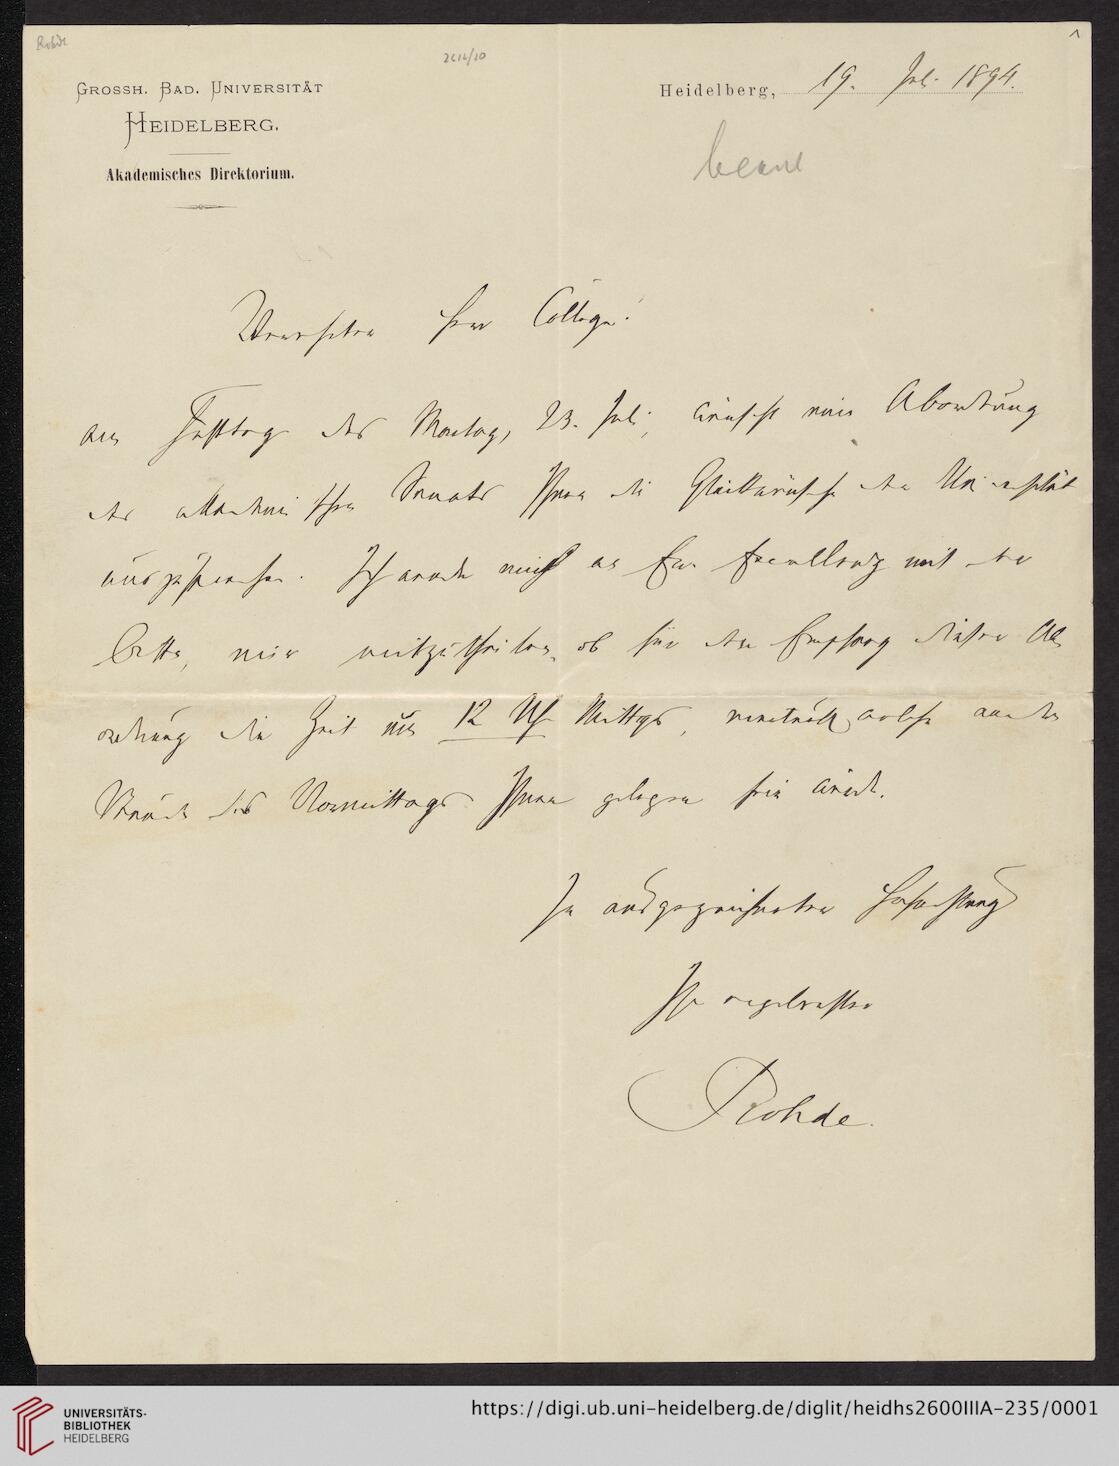 Rohde
1
GROSSH. BAD. UNIVERSITÄT
HEIDELBERG.
Akademisches Direktorium.
Heidelberg, 19. Juli 1894.
Verehrter Herr College!
am Festtag des Montag, 23. Juli, wünscht eine Abordnung
des akademischen Senats Ihnen die Glückwünsche der Universität
auszusprechen. Ich wende mich an Ew. Excellenz mit der
Bitte, mir mitzutheilen, ob für den Empfang dieser Ab-
ordnung die Zeit um 12 Uhr Mittags, eventuell welche andre
Stunde des Vormittags Ihnen gelegen sein würde.
In ausgezeichneter Hochachtung
Ihr ergebenster
Rohde.
UNIVERSITÄTS-
BIBLIOTHEK
HEIDELBERG
https://digi.ub.uni-heidelberg.de/diglit/heidhs2600IIIA-235/0001